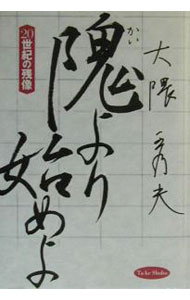 大隈秀夫
かい
隗より
始めよ
20世紀の残像
Take Shobo